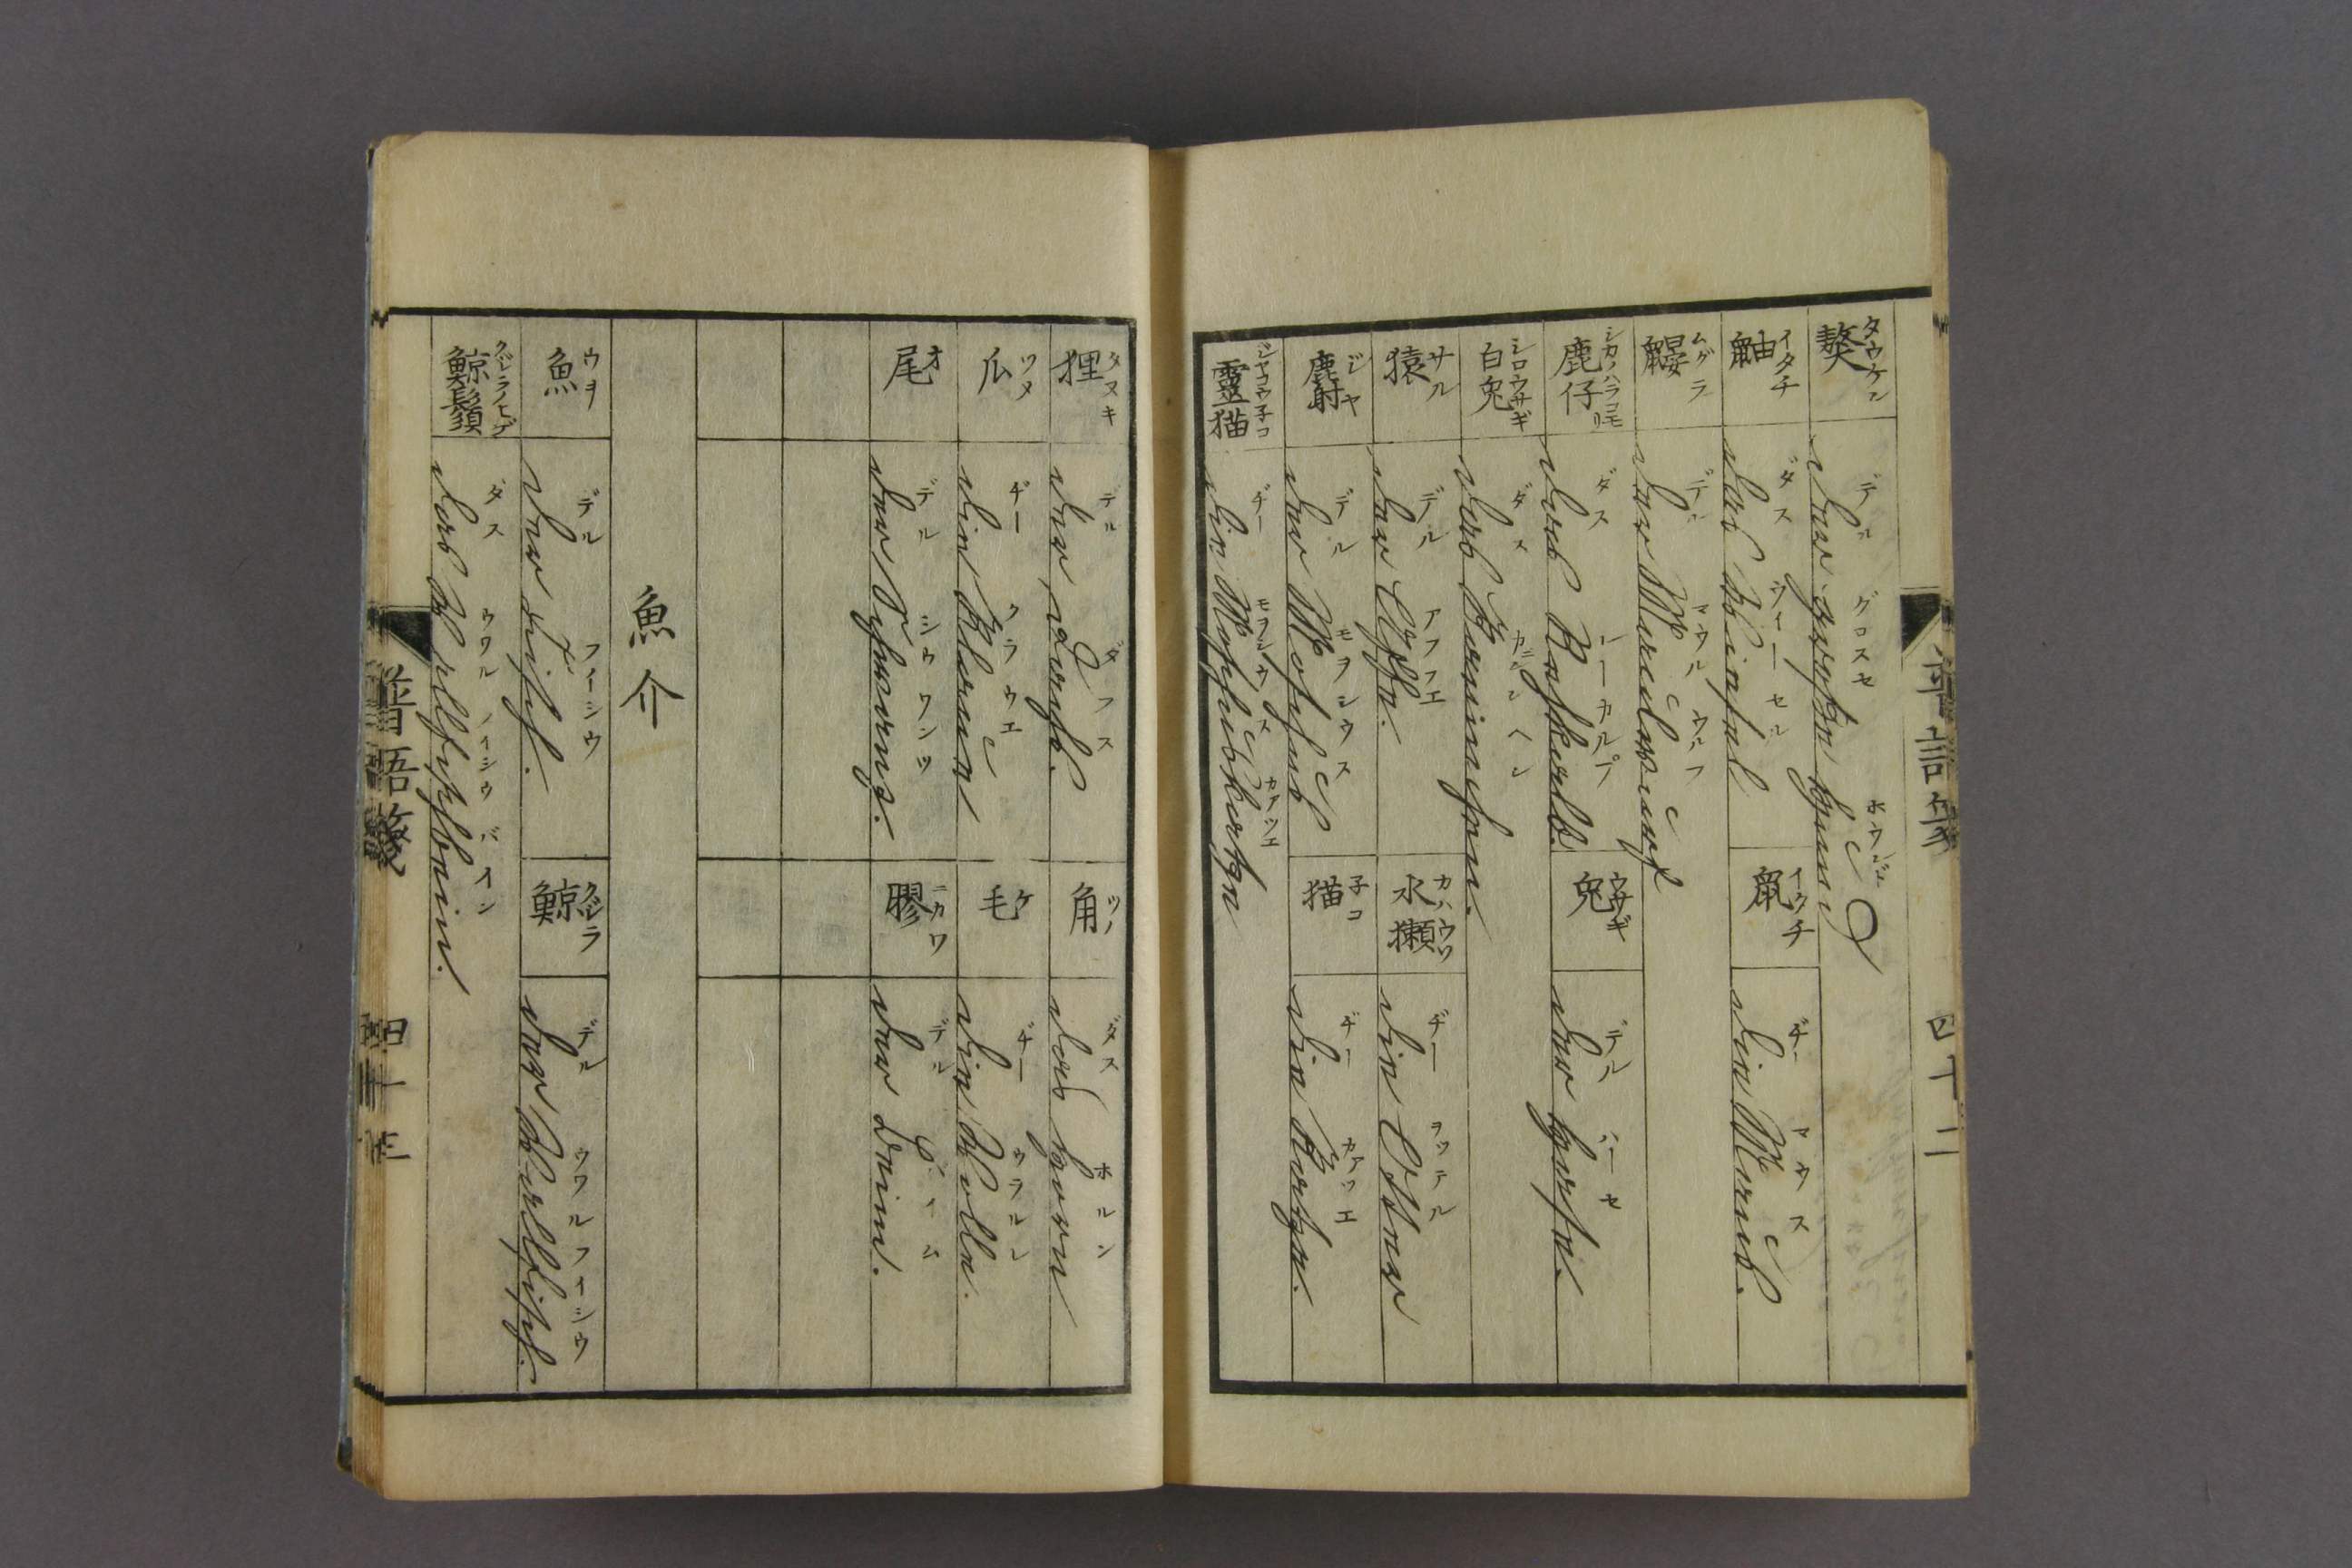 獒 タウケン
der große Hund
デル グロスセ ホウンド
鼬 イタチ
das Wiesel
ダス ウィーセル
鼠 イウチ
die Maus.
ヂー マウス
鼴 ムグラ
der Maulwurf
デル マウルウルフ
鹿仔 シカノハラコモリ
das Rehkalb.
ダス レーカルプ
兔 ウサギ
der Hase.
デル ハーセ
白兔 シロウサギ
das Kaninchen.
ダス カニンヘン
猿 サル
der Affe.
デル アフフエ
水獺 カハウソ
die Otter
ヂー ヲッテル
麝 ジヤ
der Moschus
デル モヲシウス
猫 子コ
die Katze.
ヂー カアツエ
靈猫 ジヤコウ子コ
die Moschuskatze
ヂー モヲシウス カアツエ
四十二
狸 タヌキ
der Dachs.
デル ダフス
角 ツノ
das Horn
ダス ホルン
爪 ツメ
die Klauen
ヂー クラウエ
毛 ケ
die Wolle.
ヂー
尾 オ
der Schwanz.
デル シウワンツ
膠 ニカワ
der Leim.
デル
魚介
魚 ウヲ
der Fisch.
デル フイーシウ
鯨 クジラ
der Wallfisch.
デル ウワルフイシウ
鯨鬚 クジラノヒゲ
das Wallfischbein.
ダス ウワルフイシウバイン
普語箋
四十三